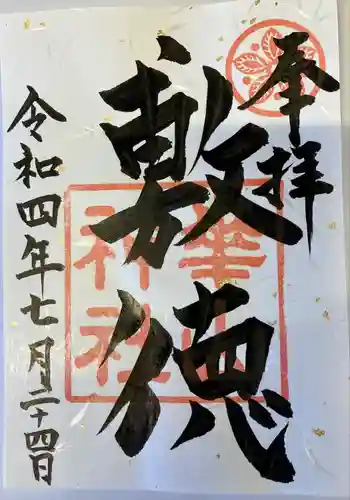 奉拝
敷徳
華山
神社
令和四年七月二十四日